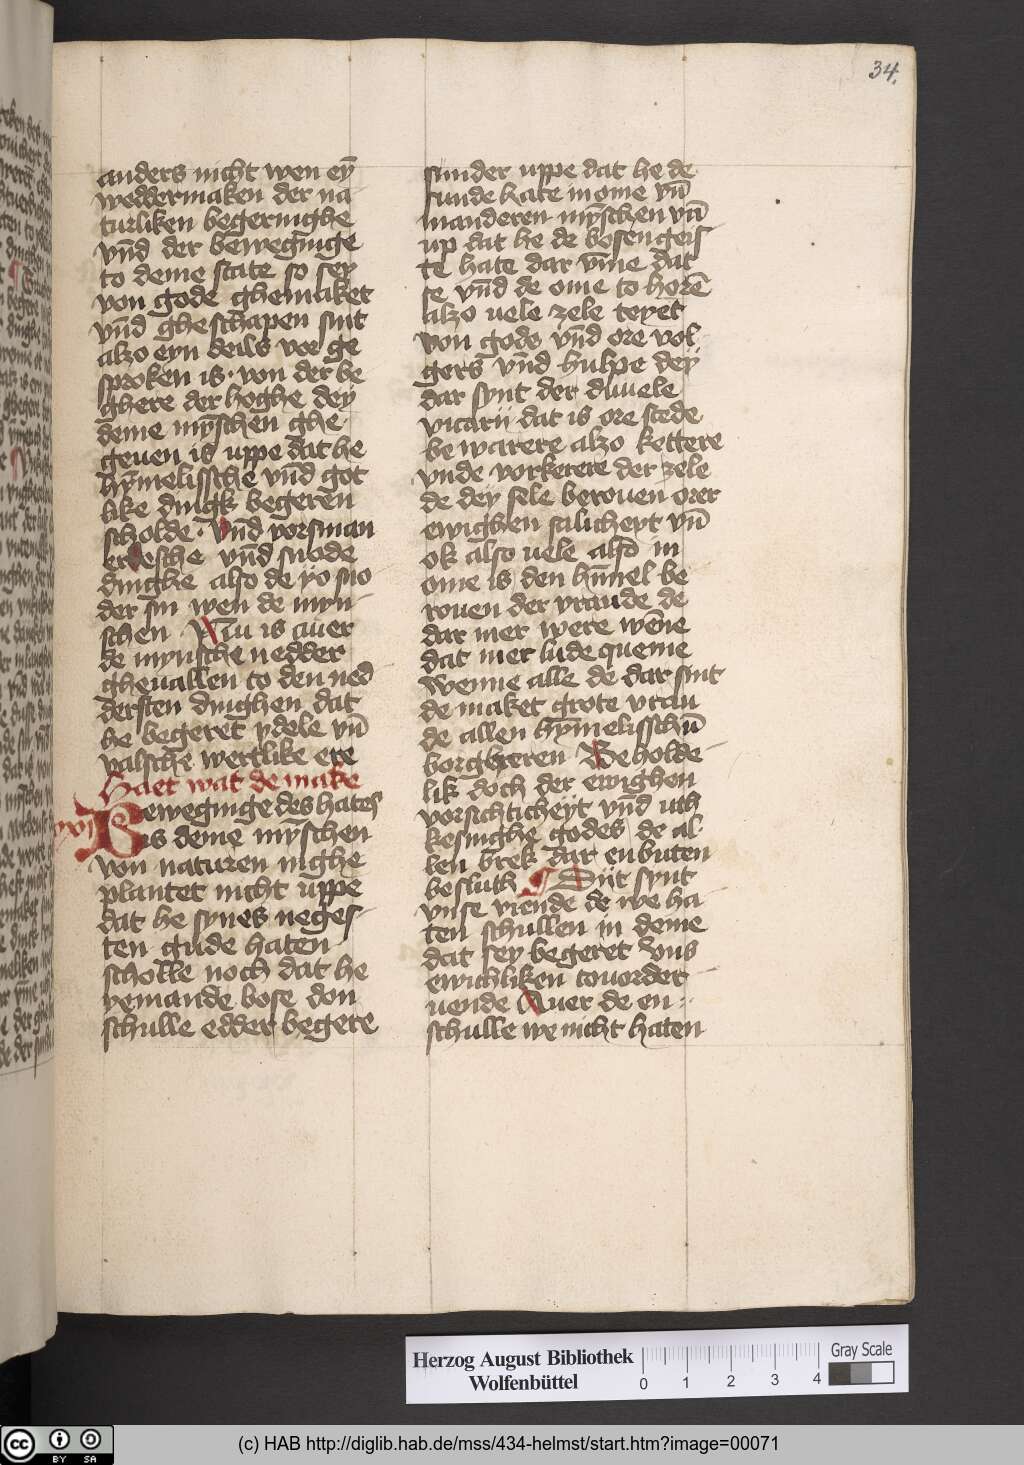 34.
anders nicht wen eȳ
weddermaken der na
turliken begeringhe
vn̄d der bewegīge
to deme state so sey
von gode ghemaket
vn̄d gheschapen sint
alzo eyn deils vor ge
sproken is · von der be
ghere der hoghe dey
deme mȳschen ghe
geuen is uppe dat he
hȳmelissche vn̄d got
like dingk begeren
scholde · Vn̄d vorsman
erdesche vn̄d snode
dinghe also de yo sno
der sin wen de myn
schen · Nu is auer
de mynsche nedder
gheuallen to den ned
dersten dinghen dat
he begeret ydele vn̄
valsche wertlike ere
Haet wat de make
xvi Beweginge des hates
is deme mȳschen
von naturen nighe
plantet nicht uppe
dat he synes neges
ten gude haten
scholle noch dat he
yemande bose don
schulle edder begere
sunder uppe dat he de
sunde hate in ome vn̄
in anderen mȳschen vn̄
up dat he de bosen geis
te hate dar v̄me dat
se vn̄d de ome to horē
alzo uele zele teyet
von gode vn̄d ore vol
gers vn̄d hulpe dey
dar synt der duuele
vicarii dat is ore stede
bewarere alzo kettere
vnde vorkerere der zele
de dey sele berouen orer
ewighen salicheyt vn̄
ok also uele also in
ome is den hīmel be
rouen der vraude de
dar mer were wēne
dat mer lude queme
wenne alle de dar sint
de maket grote vrau
de allen hȳmelisschū
borgheren · Beholde
lik doch der ewighen
vorsichticheyt vn̄d uth
kesinghe godes de al
len brek dar enbuten
besluth ¶ Dijt synt
vnse viende de we ha
ten schullen in deme
dat sey begeret vns
ewichliken touorder
uende Auer de en
schulle we nicht haten
Herzog August Bibliothek
Wolfenbüttel
0 1 2 3 4
Gray Scale
cc BY SA
(c) HAB http://diglib.hab.de/mss/434-helmst/start.htm?image=00071